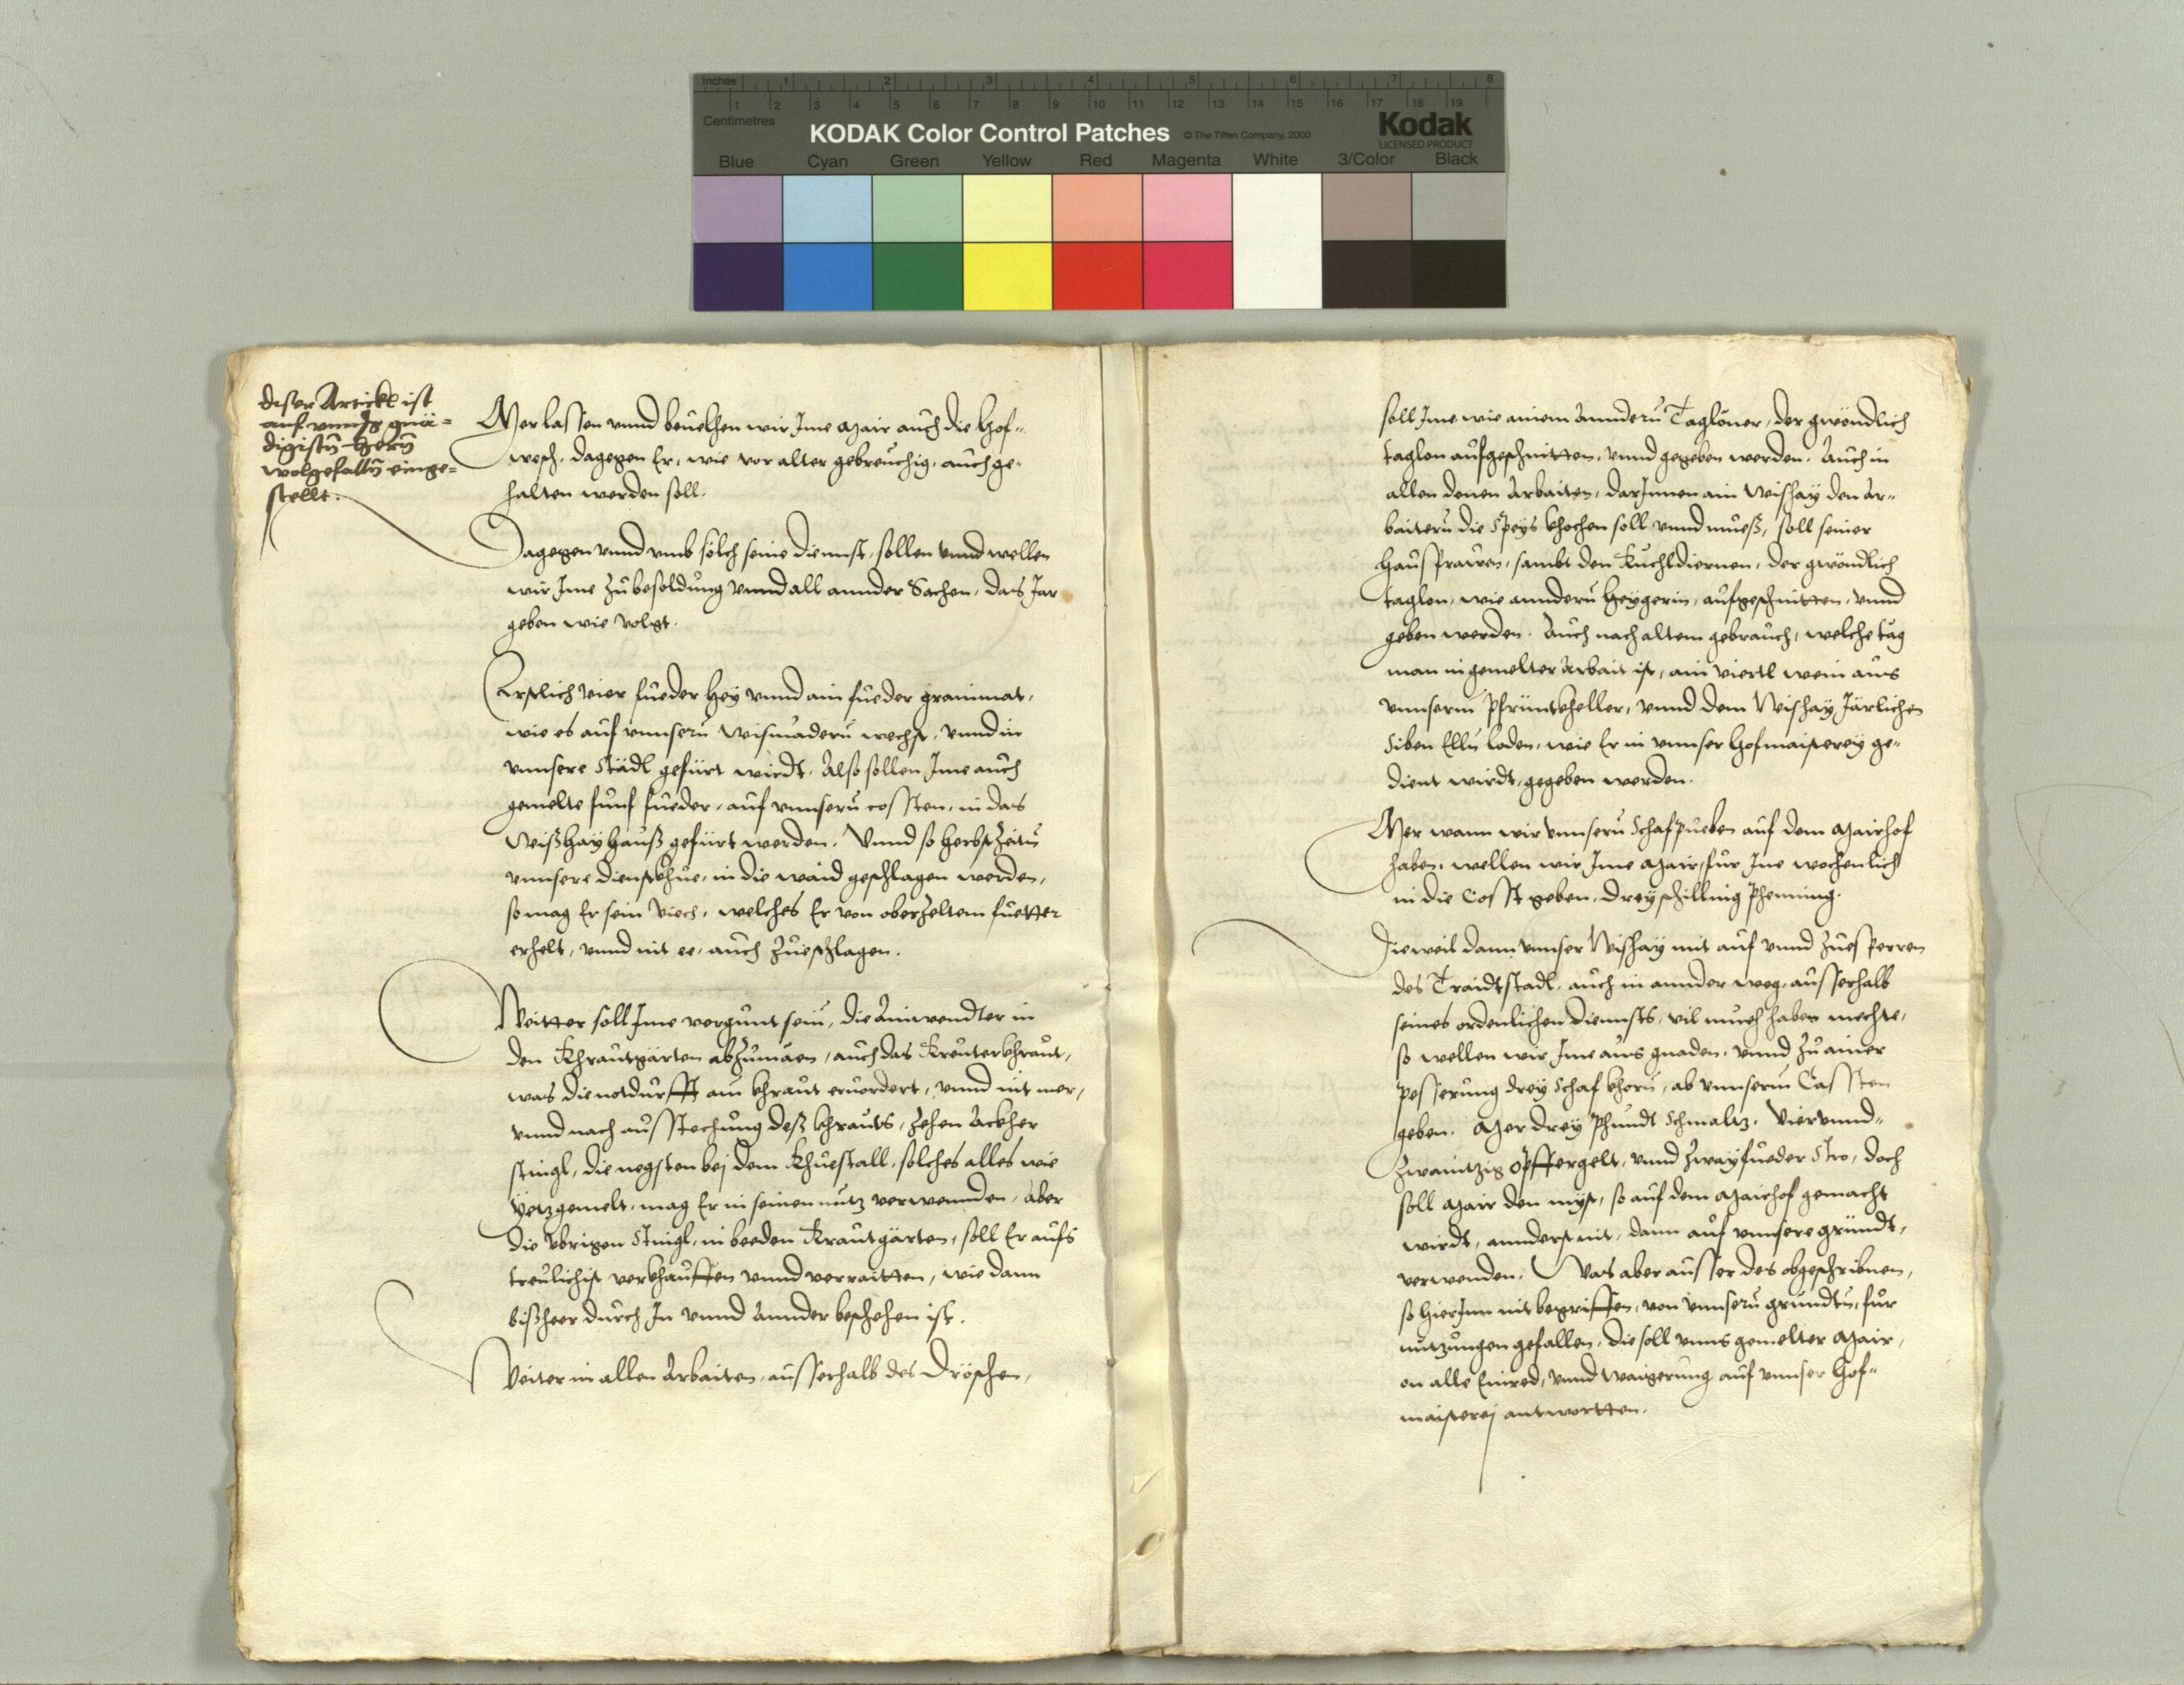 Inches 1 2 3 4 5 6 7 8
1 2 3 4 5 6 7 8 9 10 11 12 13 14 15 16 17 18 19
Centimetres
KODAK Color Control Patches © The Tiffen Company, 2000 Kodak
LICENSED PRODUCT
Blue Cyan Green Yellow Red Magenta White 3/Color Black
diser Artickl ist
auf vnnsers gnä-
digistn Herrn
wolgefalln einge-
stellt.
Mer lassen vnnd beuelhen wir Ime Mair auch die Hof-
wisch, dagegen Er, wie vor alter gebreuchig, auch ge-
halten werden soll.
Dagegen vnnd vmb solch seine diennst, sollen vnnd wellen
wir Ime zu besoldung vnnd all annder Sachen, das Jar
geben wie volgt.
Erstlich vier fueder Hey vnnd ain fueder grainmat,
wie es auf vnnsern Wismadern wechst, vnnd in
vnnsere Städl gefürt wirdt. Also sollen Ime auch
gemelte funf fueder, auf vnnsern cossten, in das
Wißhay Hauß gefürt werden. Vnnd so Herbstzeitn
vnnsere dienstkhue, in die waid geschlagen werden,
so mag Er sein Viech, welches Er von oberzeltem fuetter
erhelt, vnnd nit ee, auch zueschlagen.
Weitter soll Ime vergunt sein, die Ainwendter in
den Khrautgärten abzumäen, auch das Kreuterkhraut,
was die notdurfft am khraut eruordert, vnnd nit mer,
vnnd nach ausstechung deß khrauts, zehen Ackher
stingl, die negsten bej dem Khuestall, solches alles wie
yetzgemelt, mag Er in seinen nutz verwennden, aber
die vbrigen Stingl, in beeden Krautgärten, soll Er aufs
treulichist verkhauffen vnnd verraitten, wie dann
bißheer durch In vnnd Annder beschehen ist.
Weiter in allen Arbaiten, ausserhalb des Dröschen,
soll Ime wie ainem Anndern Taglöner, der gwöndlich
taglon aufgeschnitten, vnnd gegeben werden. Auch in
allen denen Arbaiten, darInnen ain Wishay den Ar-
baitern die Speys khochen soll vnnd mueß, soll seiner
Hausfrawen, sambt den Kuchldiernen, der gwöndlich
taglon, wie anndern Heygerin, aufgeschnitten, vnnd
geben werden. Auch nach altem gebrauch, welche tag
man in gemelter Arbait ist, ain viertl wein aus
vnnserm Pfrüntkheller, vnnd dem Wishay Järlichen
Siben Elln loden, wie Er in vnnser Hofmaisterey ge-
dient wirdt, gegeben werden.
Mer wann wir vnnsern Schafpueben auf dem Mairhof
haben, wellen wir Ime Mair, für Ine wochenlich
in die Cosst geben, drey schilling Phenning.
Dieweil dann vnnser Wishay mit auf vnnd zuesperren
des Traidtstadl, auch in annder weg, ausserhalb
seines ordenlichen diennsts, vil mueh haben mechte,
so wellen wir Ime aus gnaden, vnnd zu ainer
pesserung drey Schaf khorn, ab vnnserm Cassten
geben. Mer drey Phundt Schmaltz. Viervnnd-
zwaintzig opffergelt, vnnd zway fueder Stro, doch
soll Mair den myst, so auf dem Mairhof gemacht
wirdt, annderst nit, dann auf vnnsere gründt,
verwenden. Was aber ausser des obgeschribnen,
so hierInn nit begriffen, von vnnsern grundtn, für
nutzungen gefallen, die soll vnns gemelter Mair,
on alle Einred, vnnd waigerung auf vnnser Hof-
maisterej antwortten.